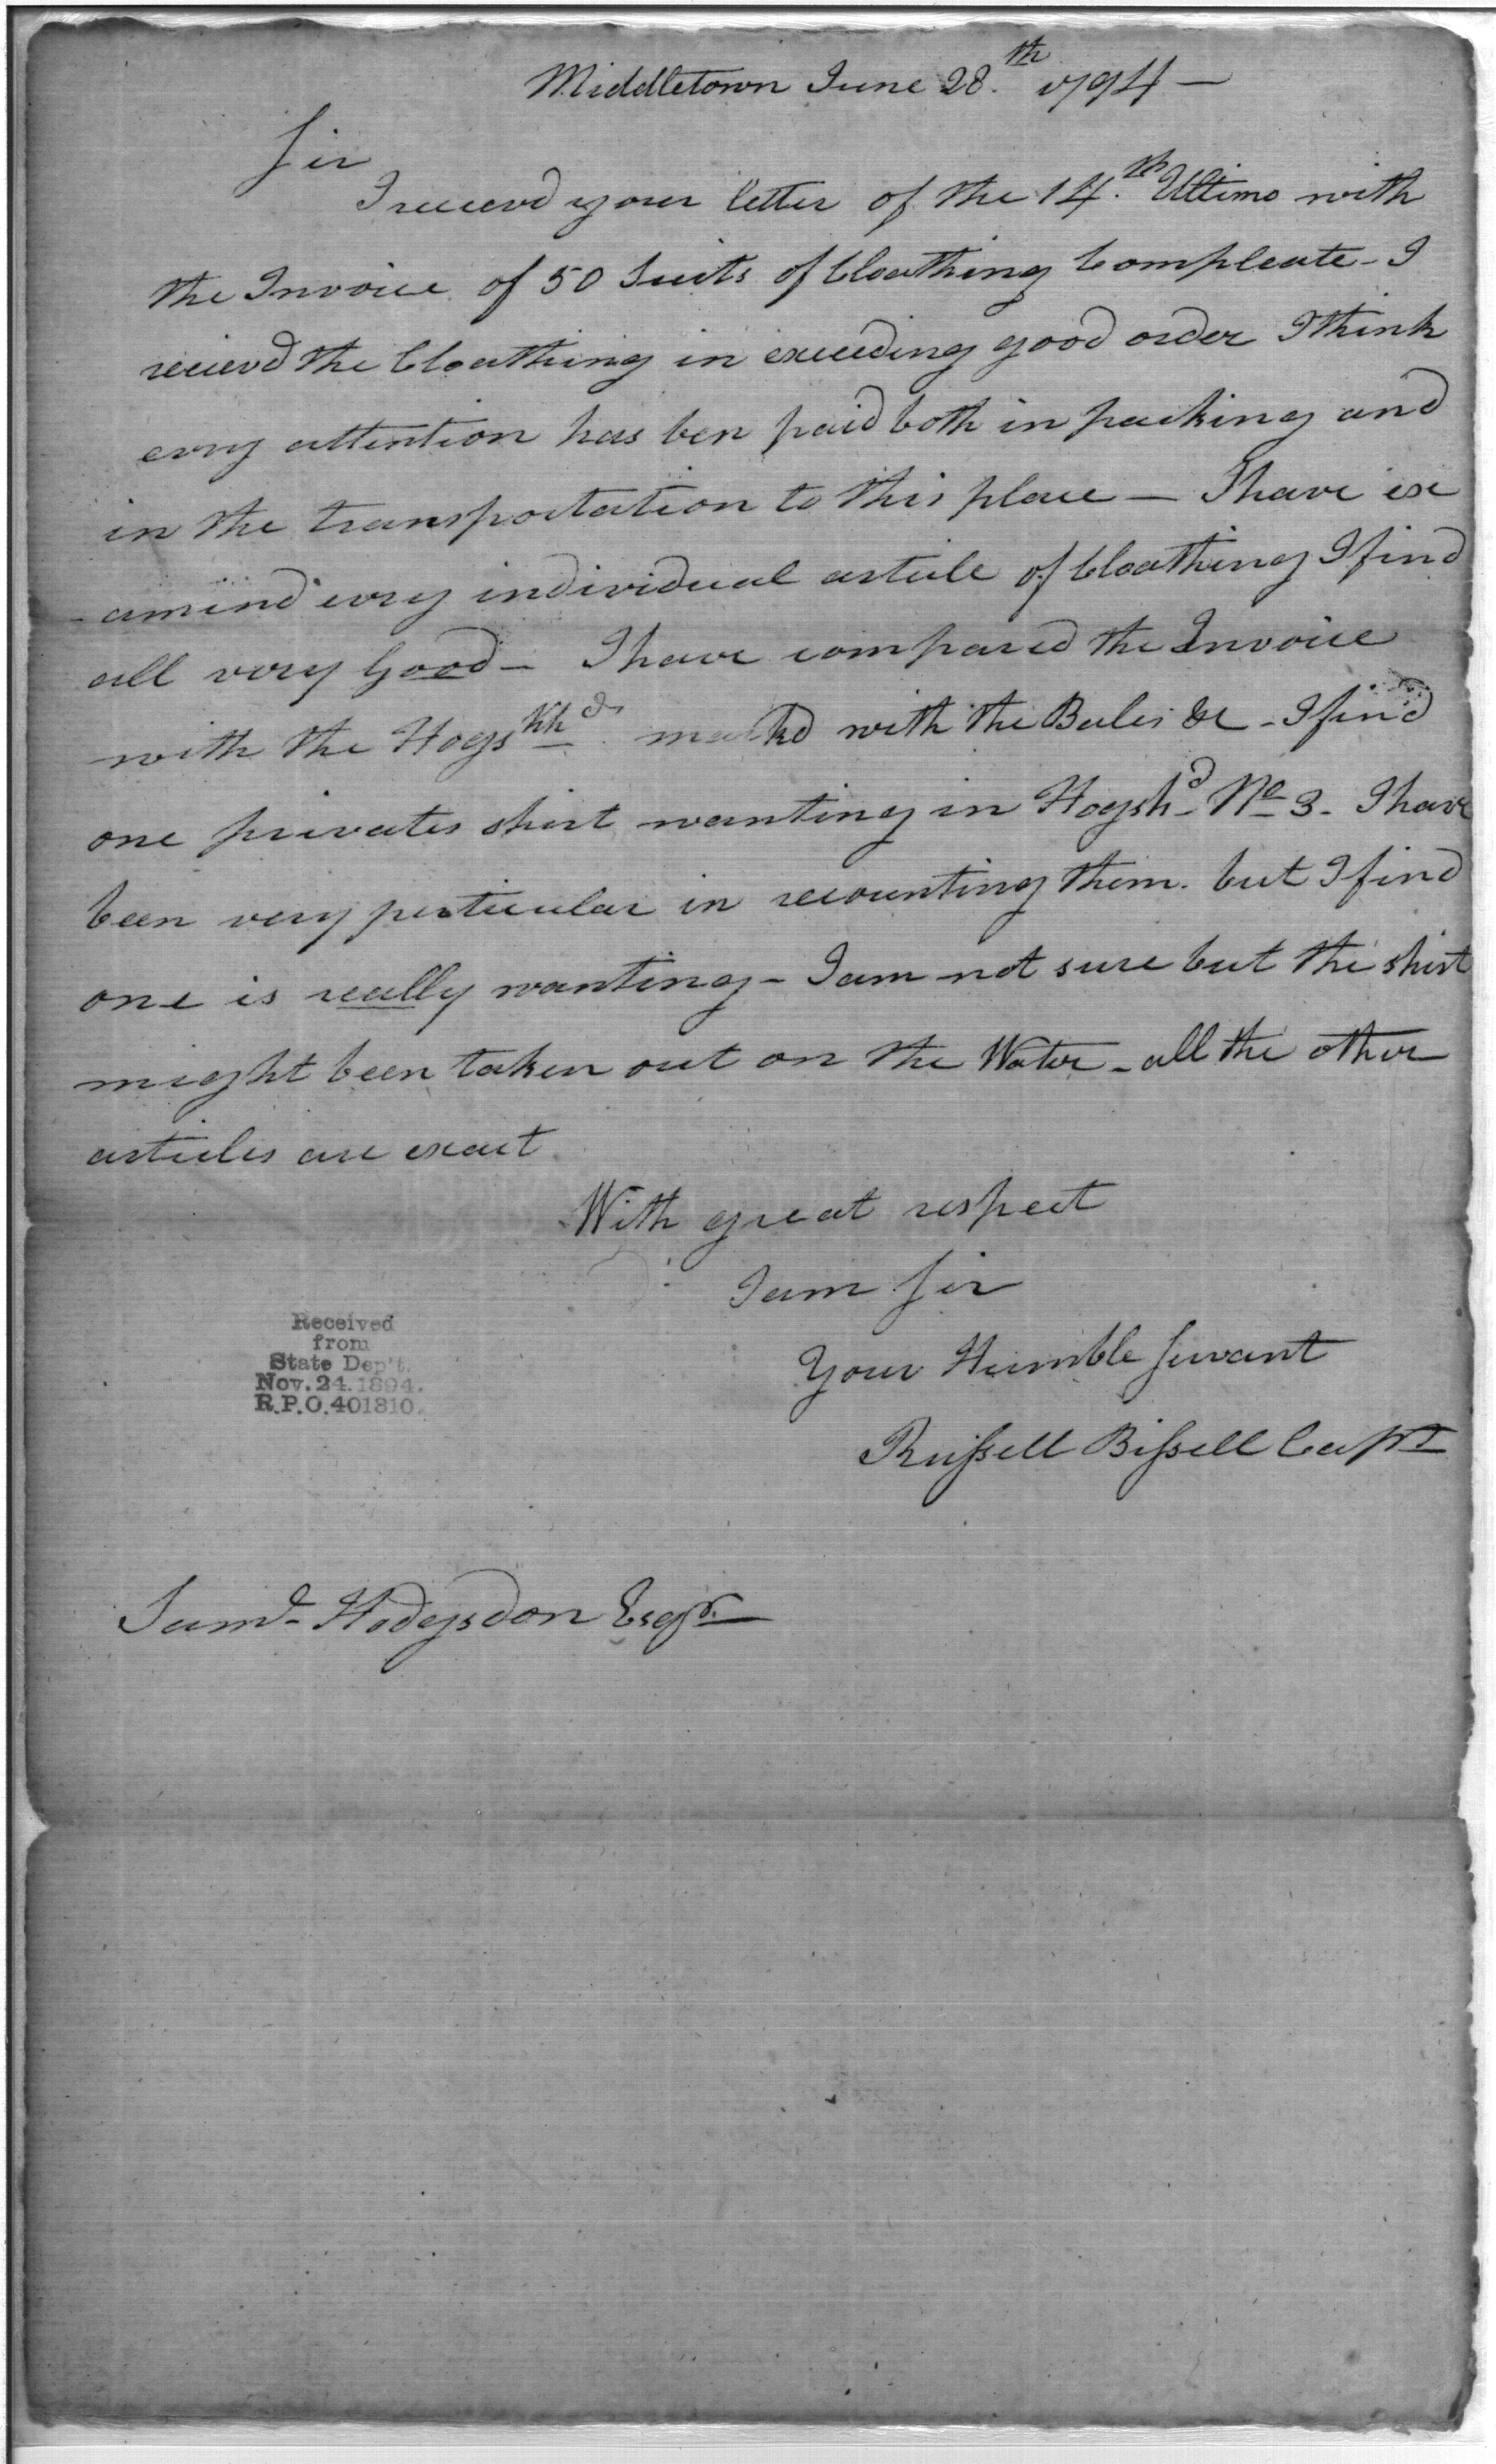 Middletown June 28.th 1794 —
Sir
I recievd your letter of the 14.th Ultimo with
the Invoice of 50 Suits of Cloathing Compleate - I
recievd the Cloathing in exceeding good order I think
evry attention has ben paid both in packing and
in the transportation to this place — I have ex
-amind evry individual article of Cloathing I find
all very Good - I have compared the Invoice
with the Hogs markd with the Bales &c - I find
one privates shirt wanting in Hogshd No 3 - I have
been very perticular in recounting them. but I find
one is really wanting - I am not sure but the shirt
might been taken out on the Water - all the other
articles are exact
With great respect
I am Sir
Your Humble Servant
Russell Bissell Capt
Received
from
State Dep't.
Nov. 24. 1894.
R.P.O. 401810.
Saml Hodgsdon Esqr